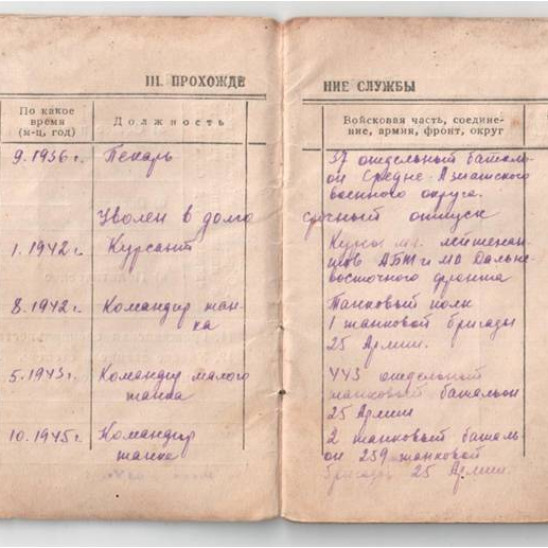 III. ПРОХОЖДЕ
НИЕ СЛУЖБЫ
По какое
время
(м-ц, год)
Должность
Войсковая часть, соедине-
ние, армия, фронт, округ
9.1936 г. Пекарь 37 отдельный баталь-
он Средне-Азиатского
военного округа.
Уволен в долго срочный отпуск
1.1942 г. Курсант Курсы мл. лейтенан-
тов АБТ и МВ Дальне-
восточного фронта
8.1942 г. Командир тан- Танковый полк
ка 1 танковой бригады
25 Армии.
5.1943 г. Командир малого 443 отдельной
танка танковый батальон
25 Армии
10.1945 г. Командир 2 танковый баталь-
танка он 259 танковой
бригады 25 Армии.